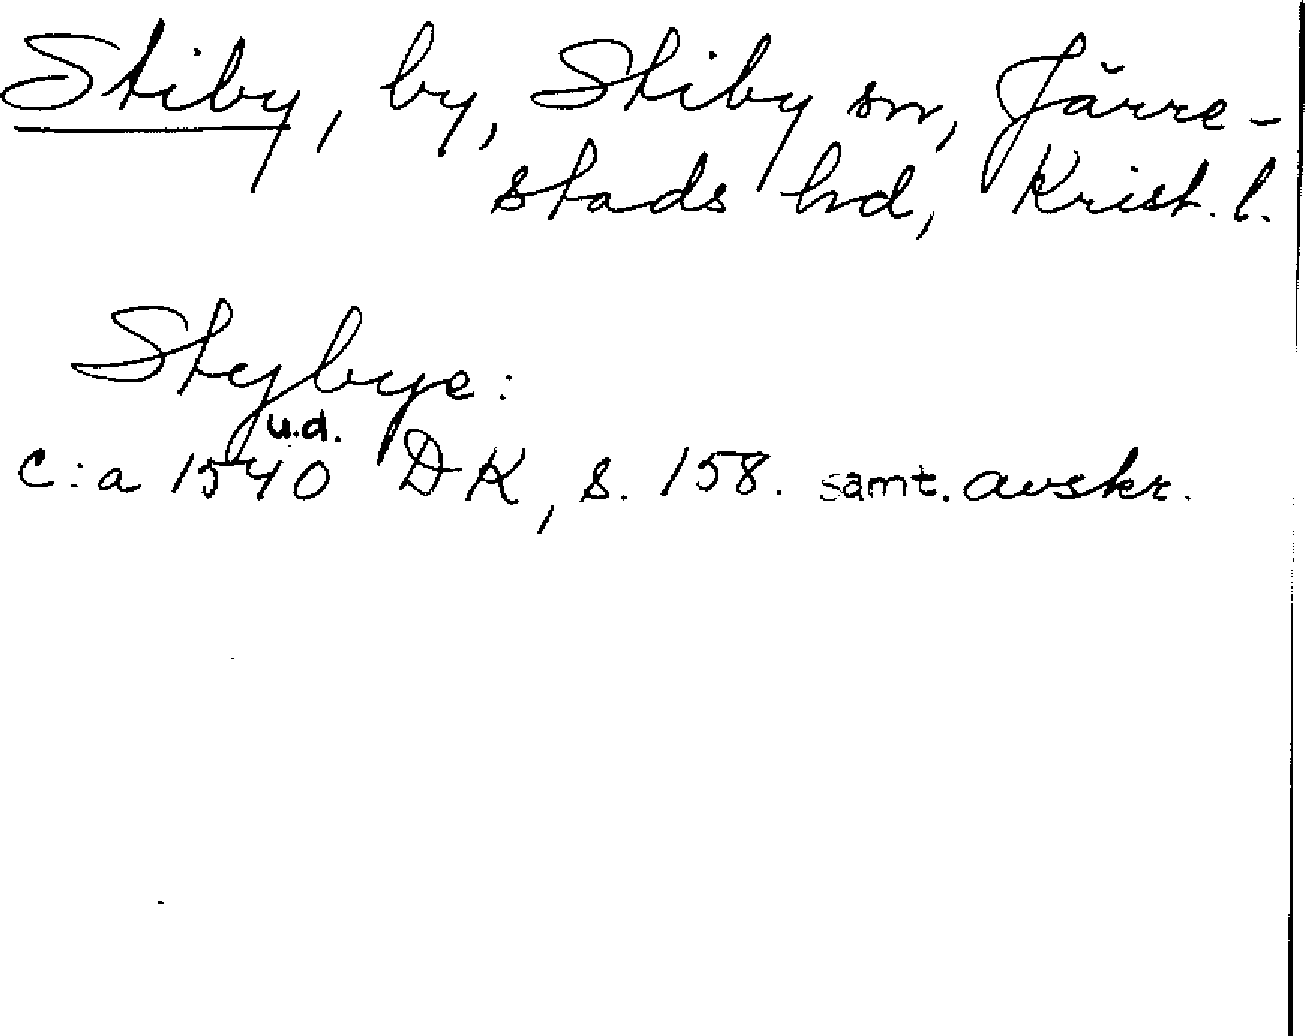 Stiby, by, Stiby sn, Järre-
stads hd, Krist. l.
Stybye:
u.d.
c:a 1540 DK, s. 158. samt. avskr.